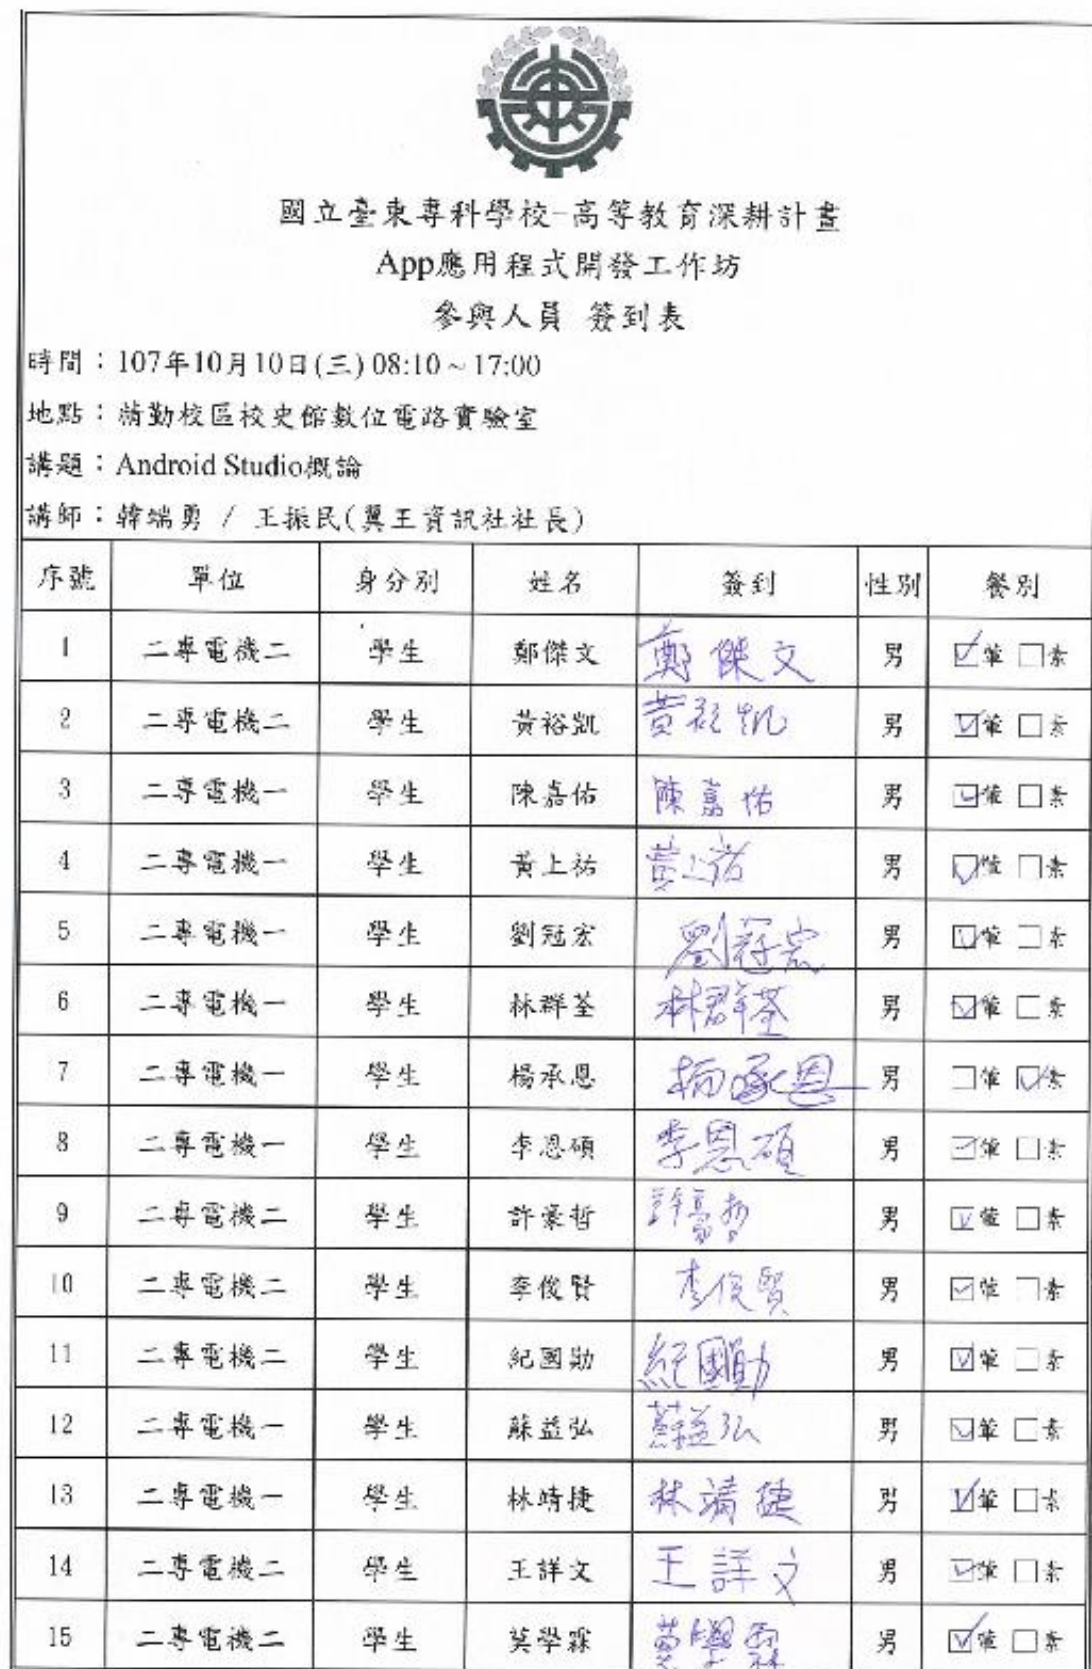 國立臺東專科學校-高等教育深耕計畫
App應用程式開發工作坊
參與人員 簽到表
時間：107年10月10日(三) 08:10~17:00
地點：精勤校區校史館數位電路實驗室
講題：Android Studio概論
講師：韓端勇 / 王振民(翼王資訊社社長)
序號 單位 身分別 姓名 簽到 性別 餐別
1 二專電機二 學生 鄭傑文 鄭傑文 男 ☑葷 □素
2 二專電機二 學生 黃裕凱 黃裕凱 男 ☑葷 □素
3 二專電機一 學生 陳嘉佑 陳嘉佑 男 ☑葷 □素
4 二專電機一 學生 黃上祐 黃上祐 男 ☑葷 □素
5 二專電機一 學生 劉冠宏 劉冠宏 男 ☑葷 □素
6 二專電機一 學生 林群荃 林群荃 男 ☑葷 □素
7 二專電機一 學生 楊承恩 楊承恩 男 □葷 ☑素
8 二專電機一 學生 李恩碩 李恩碩 男 ☑葷 □素
9 二專電機二 學生 許豪哲 許豪哲 男 ☑葷 □素
10 二專電機二 學生 李俊賢 李俊賢 男 ☑葷 □素
11 二專電機二 學生 紀國勛 紀國勛 男 ☑葷 □素
12 二專電機一 學生 蘇益弘 蘇益弘 男 ☑葷 □素
13 二專電機一 學生 林靖捷 林靖捷 男 ☑葷 □素
14 二專電機二 學生 王詳文 王詳文 男 ☑葷 □素
15 二專電機二 學生 男 ☑葷 □素